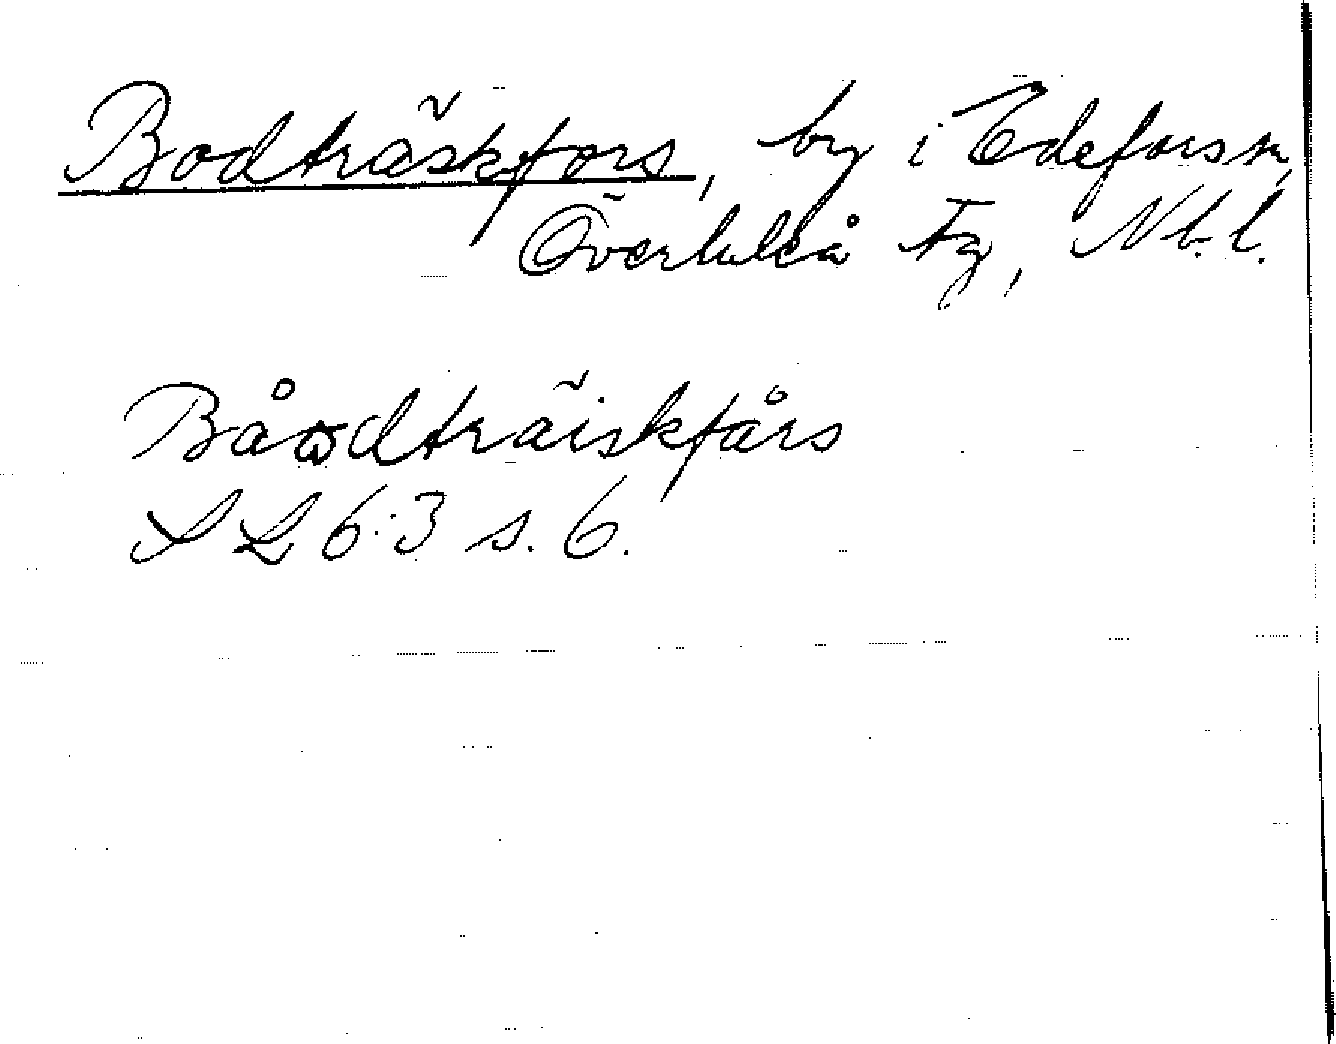 Bodträskfors, by i Edefors sn,
Överluleå tg, Nb. l.
Båodträiskfårs
SL 6:3 s. 6.